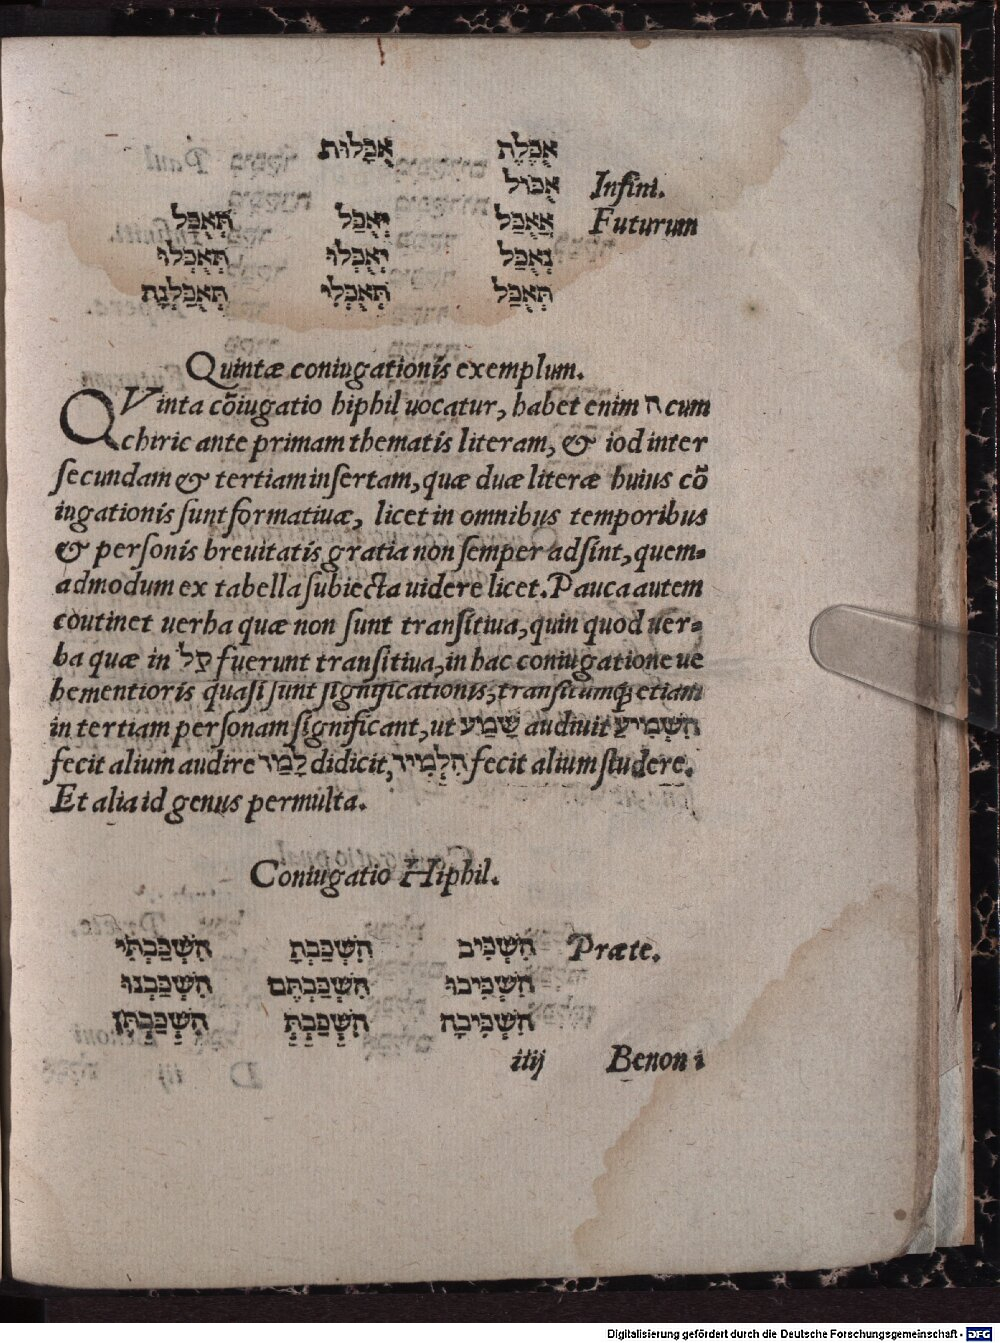 אֻכֶּלֶת אֻכָּלוֹת
אֻכּוֹל Infini.
אֲאֻכַּל יְאֻכַּל תְּאֻכַּל Futurum
נְאֻכַּל יְאֻכְּלוּ תְּאֻכְּלוּ
תְּאֻכַּל תְּאֻכְּלִי תְּאֻכַּלְנָה
Quintæ coniugationis exemplum.
QVinta cõiugatio hiphil uocatur, habet enim ה cum
chiric ante primam thematis literam, & iod inter
secundam & tertiam insertam, quæ duæ literæ huius cõ
iugationis sunt formatiuæ, licet in omnibus temporibus
& personis breuitatis gratia non semper adsint, quem-
admodum ex tabella subiecta uidere licet. Pauca autem
continet uerba quæ non sunt transitiua, quin quod uer-
ba quæ in קַל fuerunt transitiua, in hac coniugatione ue
hementioris quasi sunt significationis, transitumq̃ etiam
in tertiam personam significant, ut שָׁמַע audiuit הִשְׁמִיעַ
fecit alium audire לָמַד didicit, הִלְמִיד fecit alium studere.
Et alia id genus permulta.
Coniugatio Hiphil.
Præte. הִשְׁכִּיב הִשְׁכַּבְתָּ הִשְׁכַּבְתִּי
הִשְׁכִּיבוּ הִשְׁכַּבְתֶּם הִשְׁכַּבְנוּ
הִשְׁכִּיבָה הִשְׁכַּבְתְּ הִשְׁכַּבְתֶּן
iiij Benoni
Digitalisierung gefördert durch die Deutsche Forschungsgemeinschaft - DFG